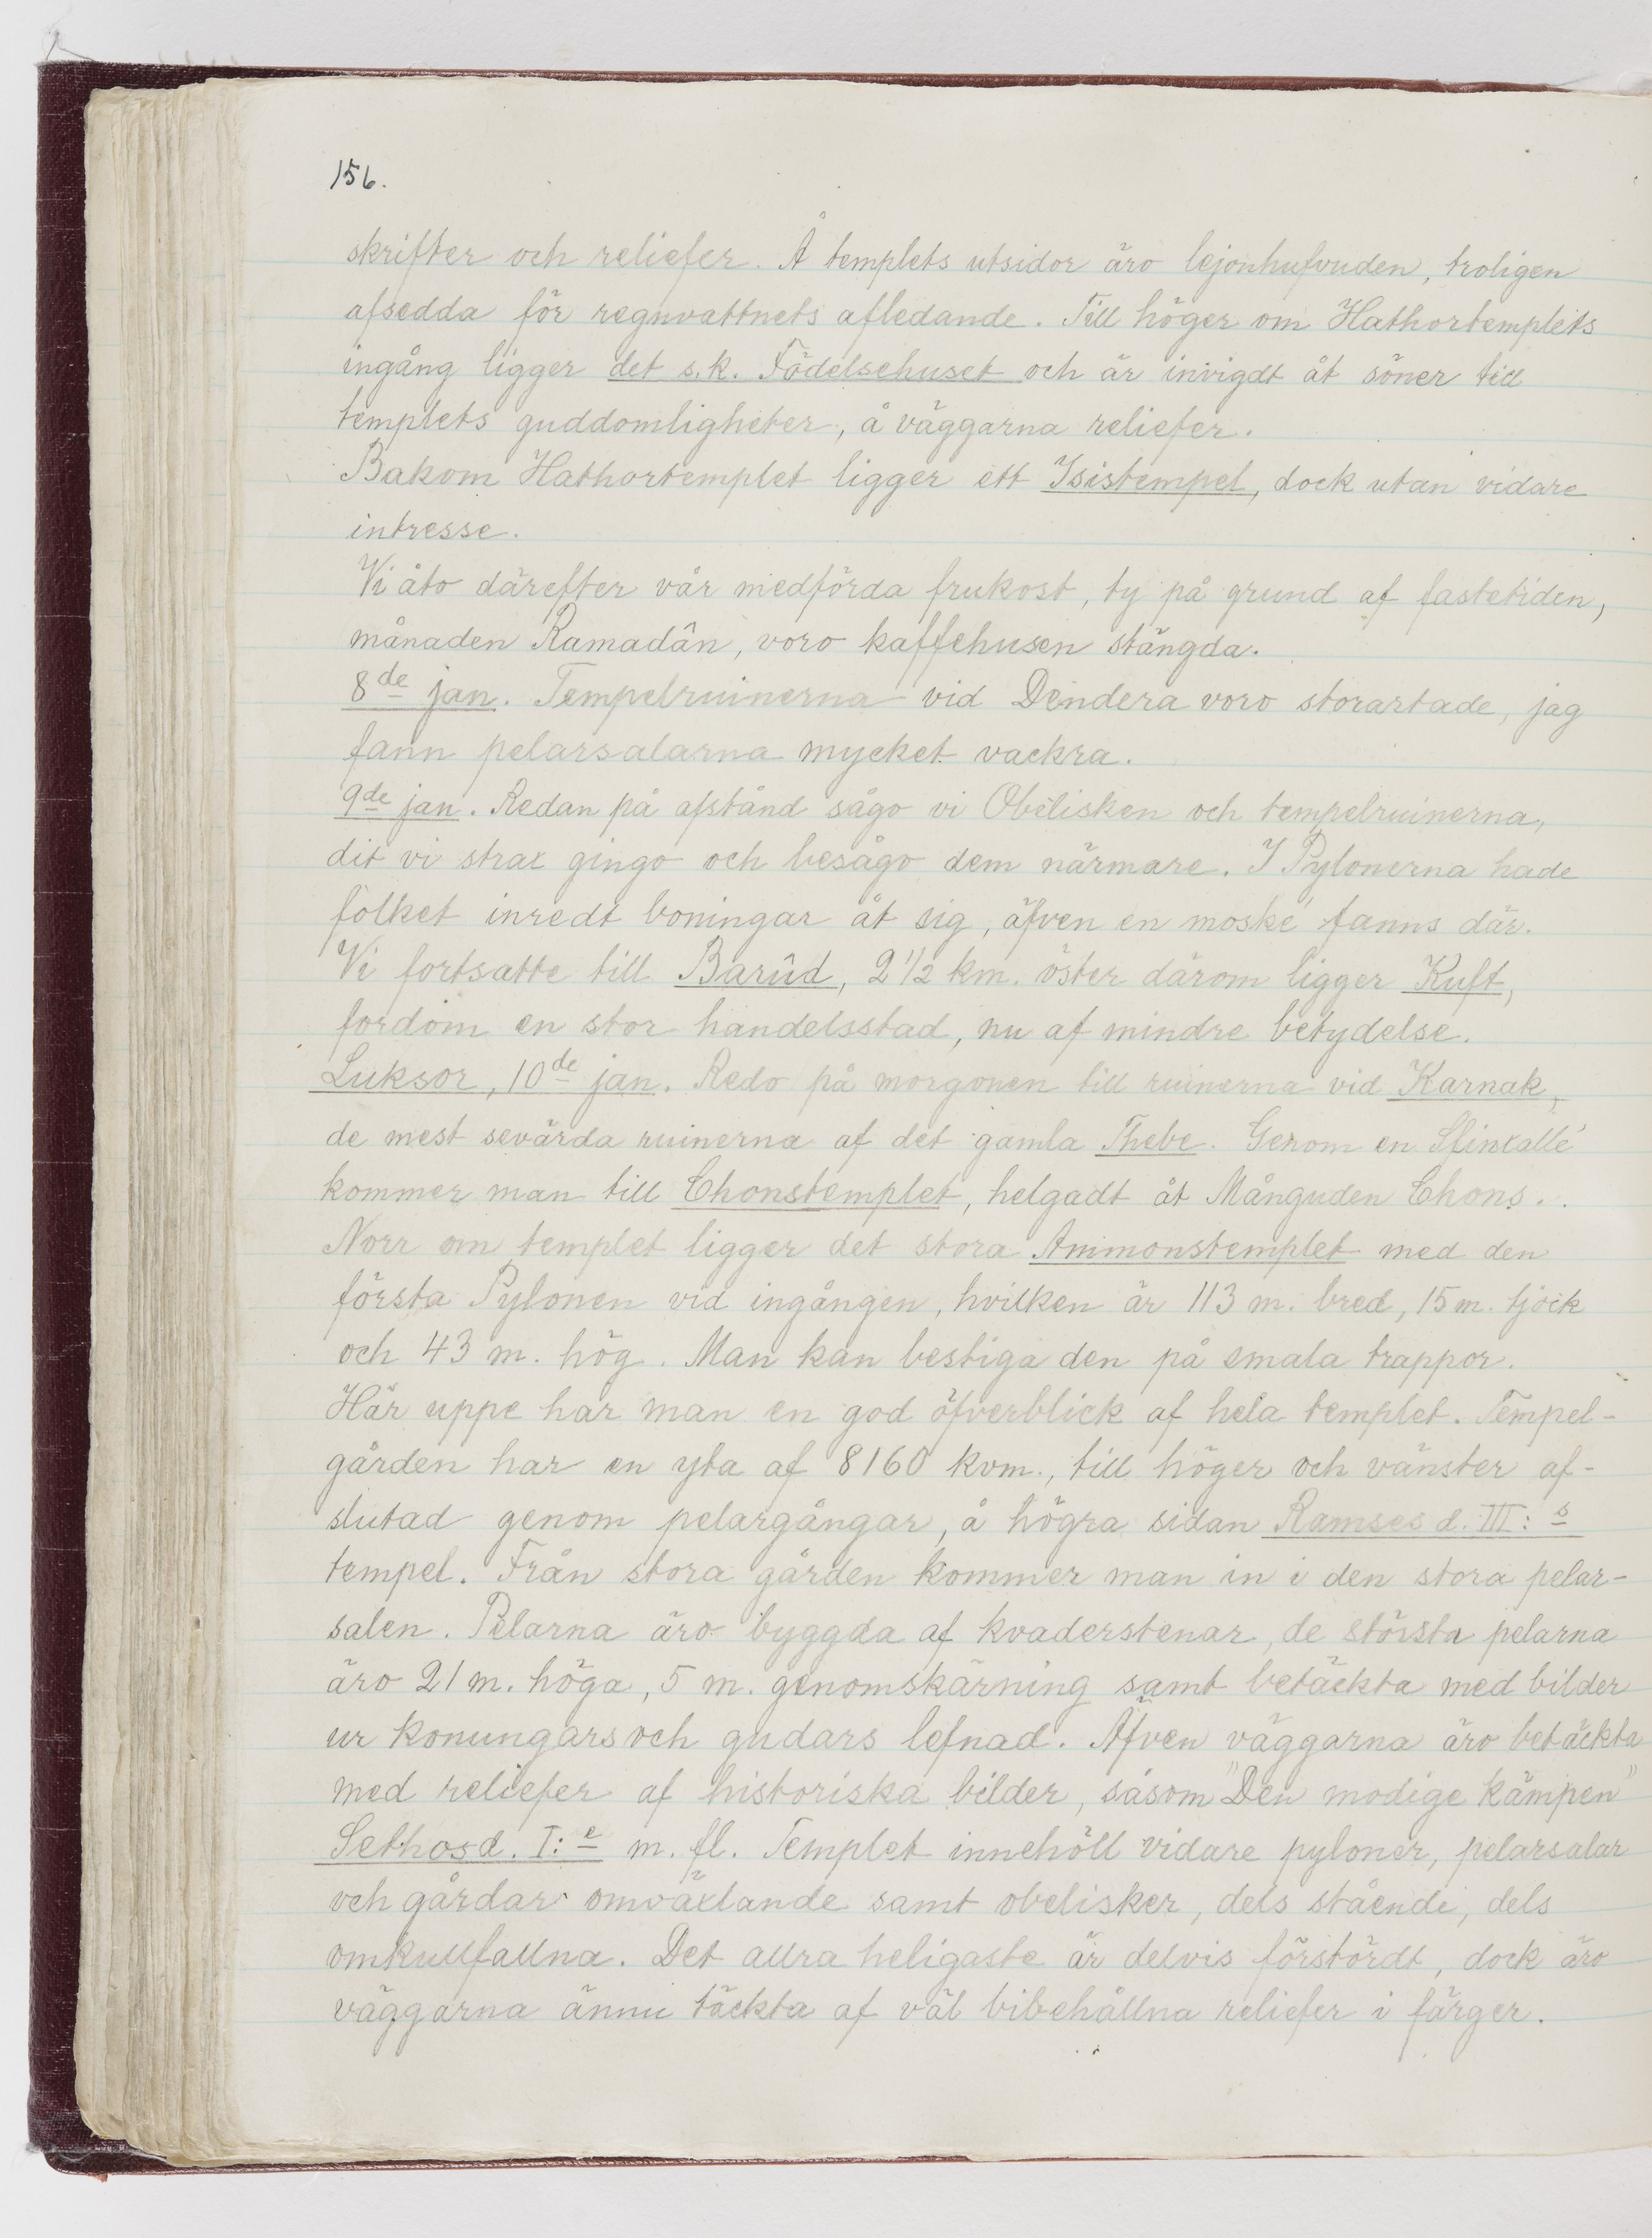 156.
skrifter och reliefer. Å templets utsidor äro lejonhufvuden, troligen
afsedda för regnvattnets afledande. Till höger om Hathortemplets
ingång ligger det s.k. Födelsehuset och är invigdt åt söner till
templets guddomligheter, å väggarna reliefer.
Bakom Hathortemplet ligger ett Isistempel, dock utan vidare
intresse.
Vi åto därefter vår medförda frukost, ty på grund af fastetiden,
månaden Ramadân, voro kaffehusen stängda.
8de jan. Tempelruinerna vid Dendera voro storartade, jag
fann pelarsalarna mycket vackra.
9de jan. Redan på afstånd sågo vi Obelisken och tempelruinerna,
dit vi strax gingo och besågo dem närmare. I Pylonerna hade
folket inredt boningar åt sig, äfven en moské fanns där.
Vi fortsatte till Barûd, 2 1/2 km. öster därom ligger Kuft,
fordom en stor handelsstad, nu af mindre betydelse.
Luksor, 10de jan. Redo på morgonen till ruinerna vid Karnak,
de mest sevärda ruinerna af det gamla Thebe. Genom en Sfinxallé
kommer man till Chonstemplet, helgadt åt Månguden Chons.
Norr om templet ligger det stora Ammonstemplet med den
första Pylonen vid ingången, hvilken är 113 m. bred, 15 m. tjock
och 43 m. hög. Man kan bestiga den på smala trappor.
Här uppe har man en god öfverblick af hela templet. Tempel-
gården har en yta af 8160 kvm., till höger och vänster af-
slutad genom pelargångar, å högra sidan Ramses d. III:s
tempel. Från stora gården kommer man in i den stora pelar-
salen. Pelarna äro byggda af kvaderstenar, de största pelarna
äro 21 m. höga, 5 m. genomskärning samt betäckta med bilder
ur konungars och gudars lefnad. Äfven väggarna äro betäckta
med reliefer af historiska bilder, såsom "Den modige kämpen"
Sethos d. I:e m. fl. Templet innehöll vidare pyloner, pelarsalar
och gårdar omväxlande samt obelisker, dels stående, dels
omkullfallna. Det allra heligaste är delvis förstördt, dock äro
väggarna ännu täckta af väl bibehållna reliefer i färger.